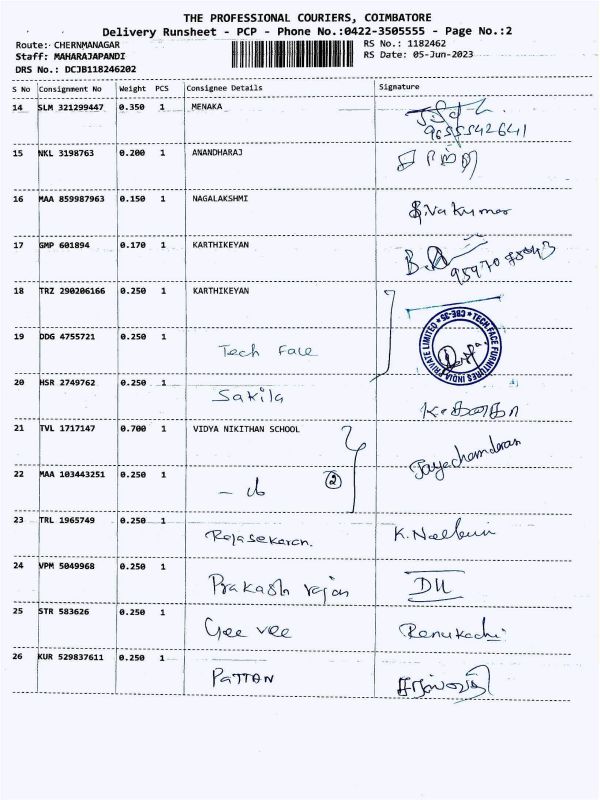 THE PROFESSIONAL COURIERS, COIMBATORE
Delivery Runsheet - PCP - Phone No.:0422-3505555 - Page No.:2
Route: CHERNMANAGAR
RS No.: 1182462
Staff: MAHARAJAPANDI
RS Date: 05-Jun-2023
DRS No.: DCJB118246202
S No Consignment No Weight PCS Consignee Details Signature
14 SLM 321299447 0.350 1 MENAKA
9655542641
15 NKL 3198763 0.200 1 ANANDHARAJ
16 MAA 859987963 0.150 1 NAGALAKSHMI
S.Vakumar
17 GMP 601894 0.170 1 KARTHIKEYAN
18 TRZ 290206166 0.250 1 KARTHIKEYAN
19 DDG 4755721 0.250 1 Tech Face
TECH FACE FURNITURES INDIA PRIVATE LIMITED * CBE-35 *
20 HSR 2749762 0.250 1 Sakila
21 TVL 1717147 0.700 1 VIDYA NIKITHAN SCHOOL
Jayachandran
22 MAA 103443251 0.250 1 2
23 TRL 1965749 0.250 1 Rajasekaran.
24 VPM 5049968 0.250 1 Prakash rajan
25 STR 583626 0.250 1 Gee vee
26 KUR 529837611 0.250 1 PATTAN